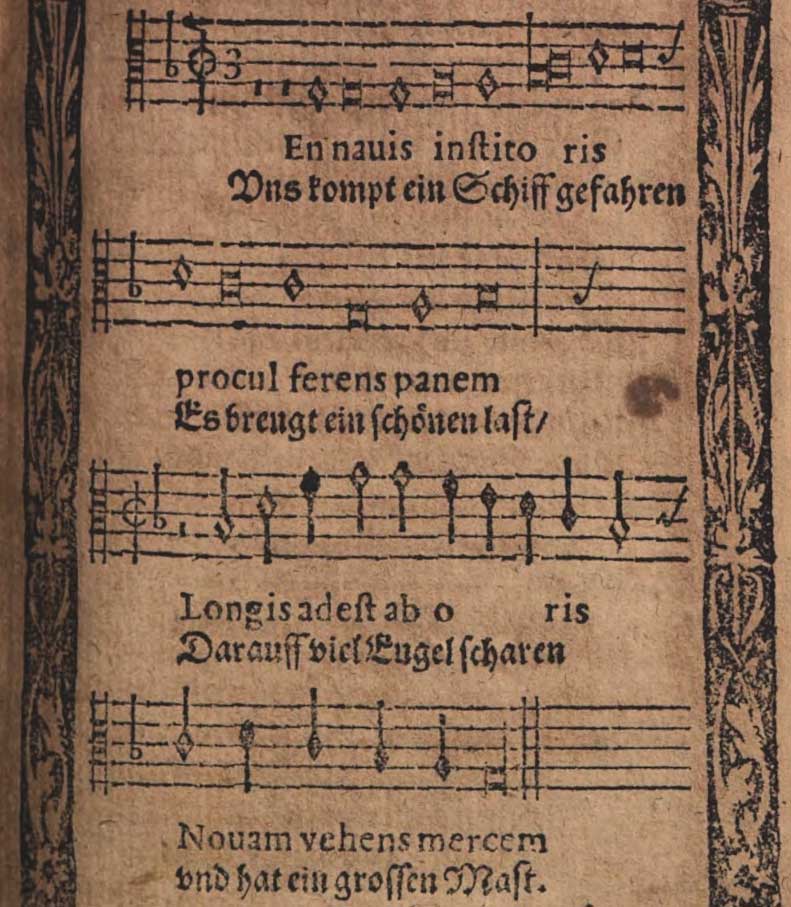 3
En nauis inſtito ris
Vns kompt ein Schiff gefahren
procul ferens panem
Es brengt ein ſchönen laſt/
Longis adeſt ab o ris
Darauff viel Engel ſcharen
Nouam vehens mercem
vnd hat ein groſſen Maſt.